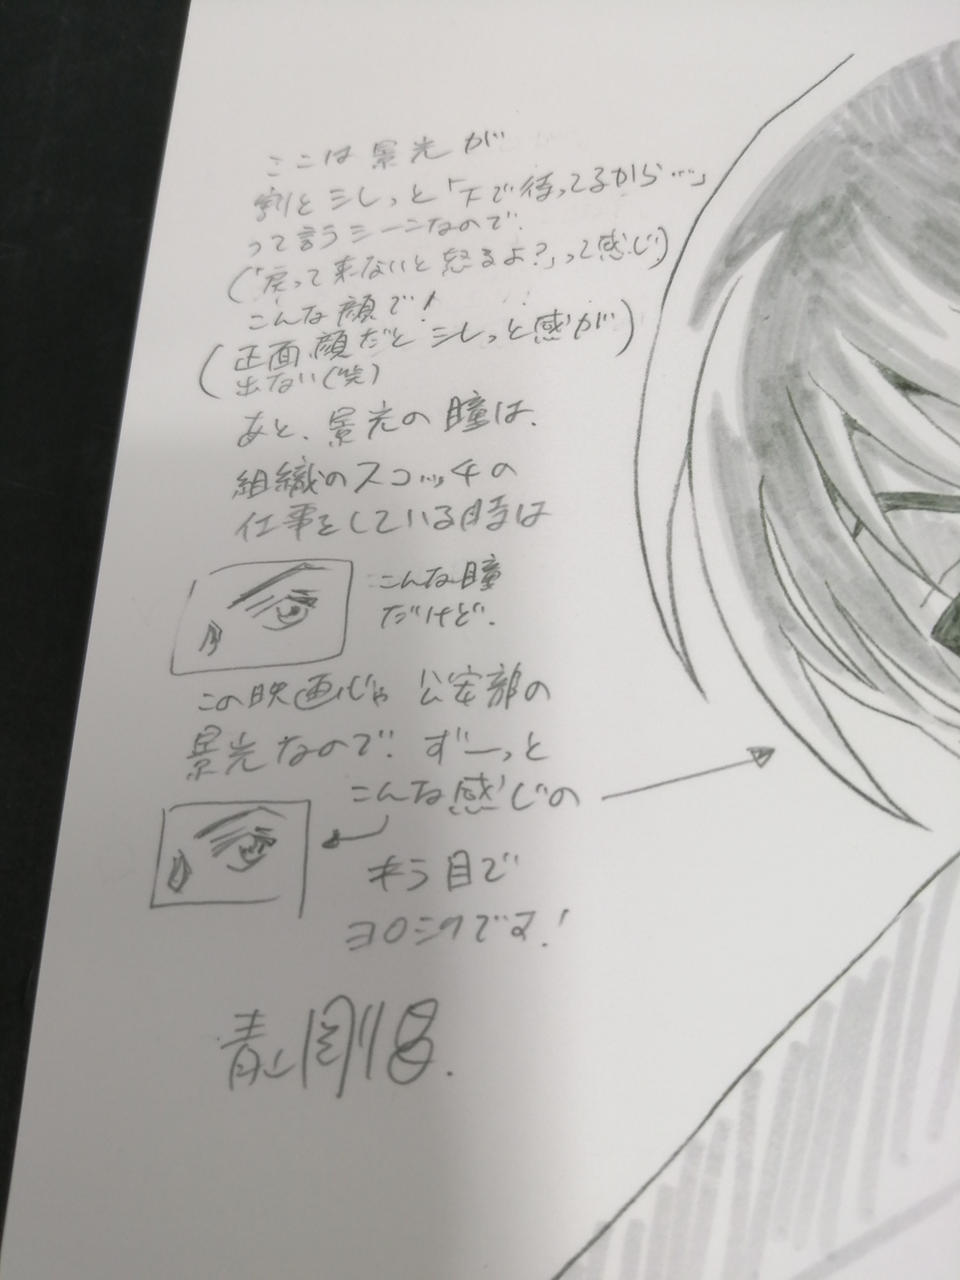 ここは景光が
割とシレっと「下で待ってるから…」
って言うシーンなので、
(「戻って来ないと怒るよ?」って感じ)
こんな顔で!
(正面顔だとシレっと感が
出ない(笑))
あと、景光の瞳は、
組織のスコッチの
仕事をしている時は
こんな瞳
だけど、
この映画じゃ公安部の
景光なので、ずーっと
こんな感じの
キラ目で
ヨロシクです!
青山剛昌.